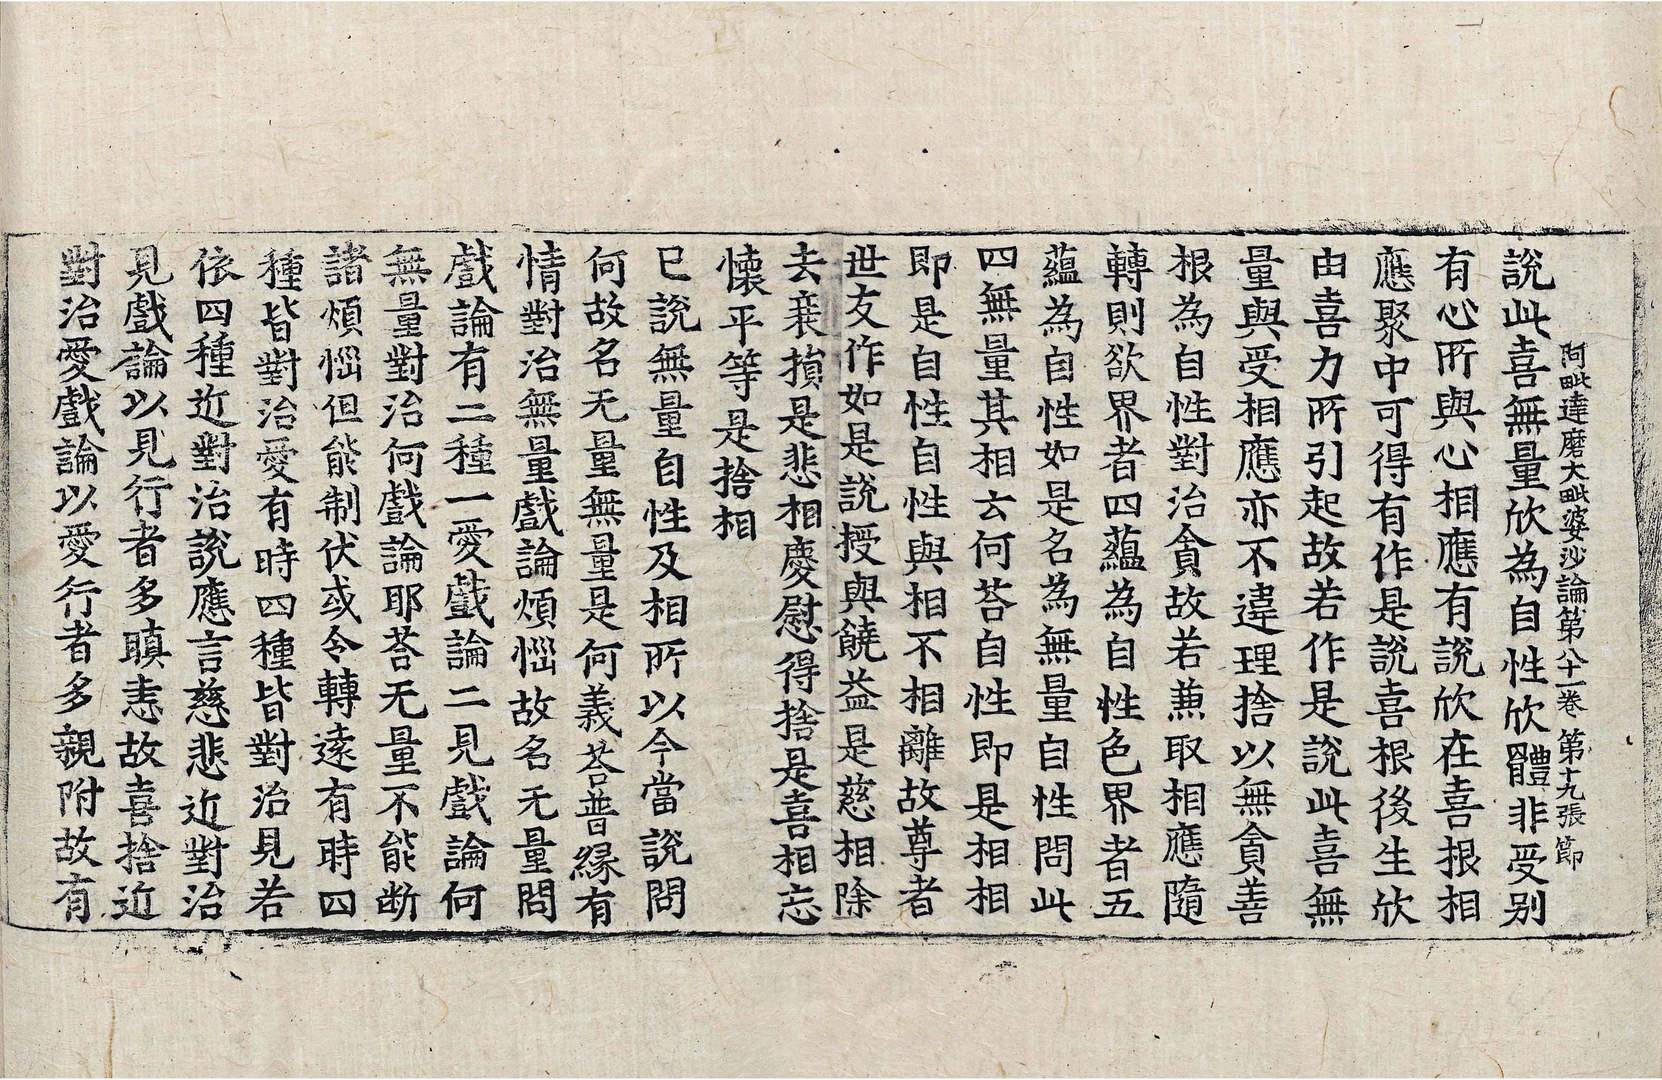 阿毗達磨大毗婆沙論第八十一卷 第十九張 節
說此喜無量欣為自性欣體非受別
有心所與心相應有說欣在喜根相
應聚中可得有作是說喜根後生欣
由喜力所引起故若作是說此喜無
量與受相應亦不違理捨以無貪善
根為自性對治貪故若兼取相應隨
轉則欲界者四蘊為自性色界者五
蘊為自性如是名為無量自性問此
四無量其相云何荅自性即是相相
即是自性自性與相不相離故尊者
世友作如是說授與饒益是慈相除
去衰損是悲相慶慰得捨是喜相忘
懷平等是捨相
已說無量自性及相所以今當說問
何故名无量無量是何義荅普緣有
情對治無量戲論煩惱故名无量問
戲論有二種一愛戲論二見戲論何
無量對治何戲論耶荅无量不能斷
諸煩惱但能制伏或令轉遠有時四
種皆對治愛有時四種皆對治見若
依四種近對治說應言慈悲近對治
見戲論以見行者多瞋恚故喜捨近
對治愛戲論以愛行者多親附故有